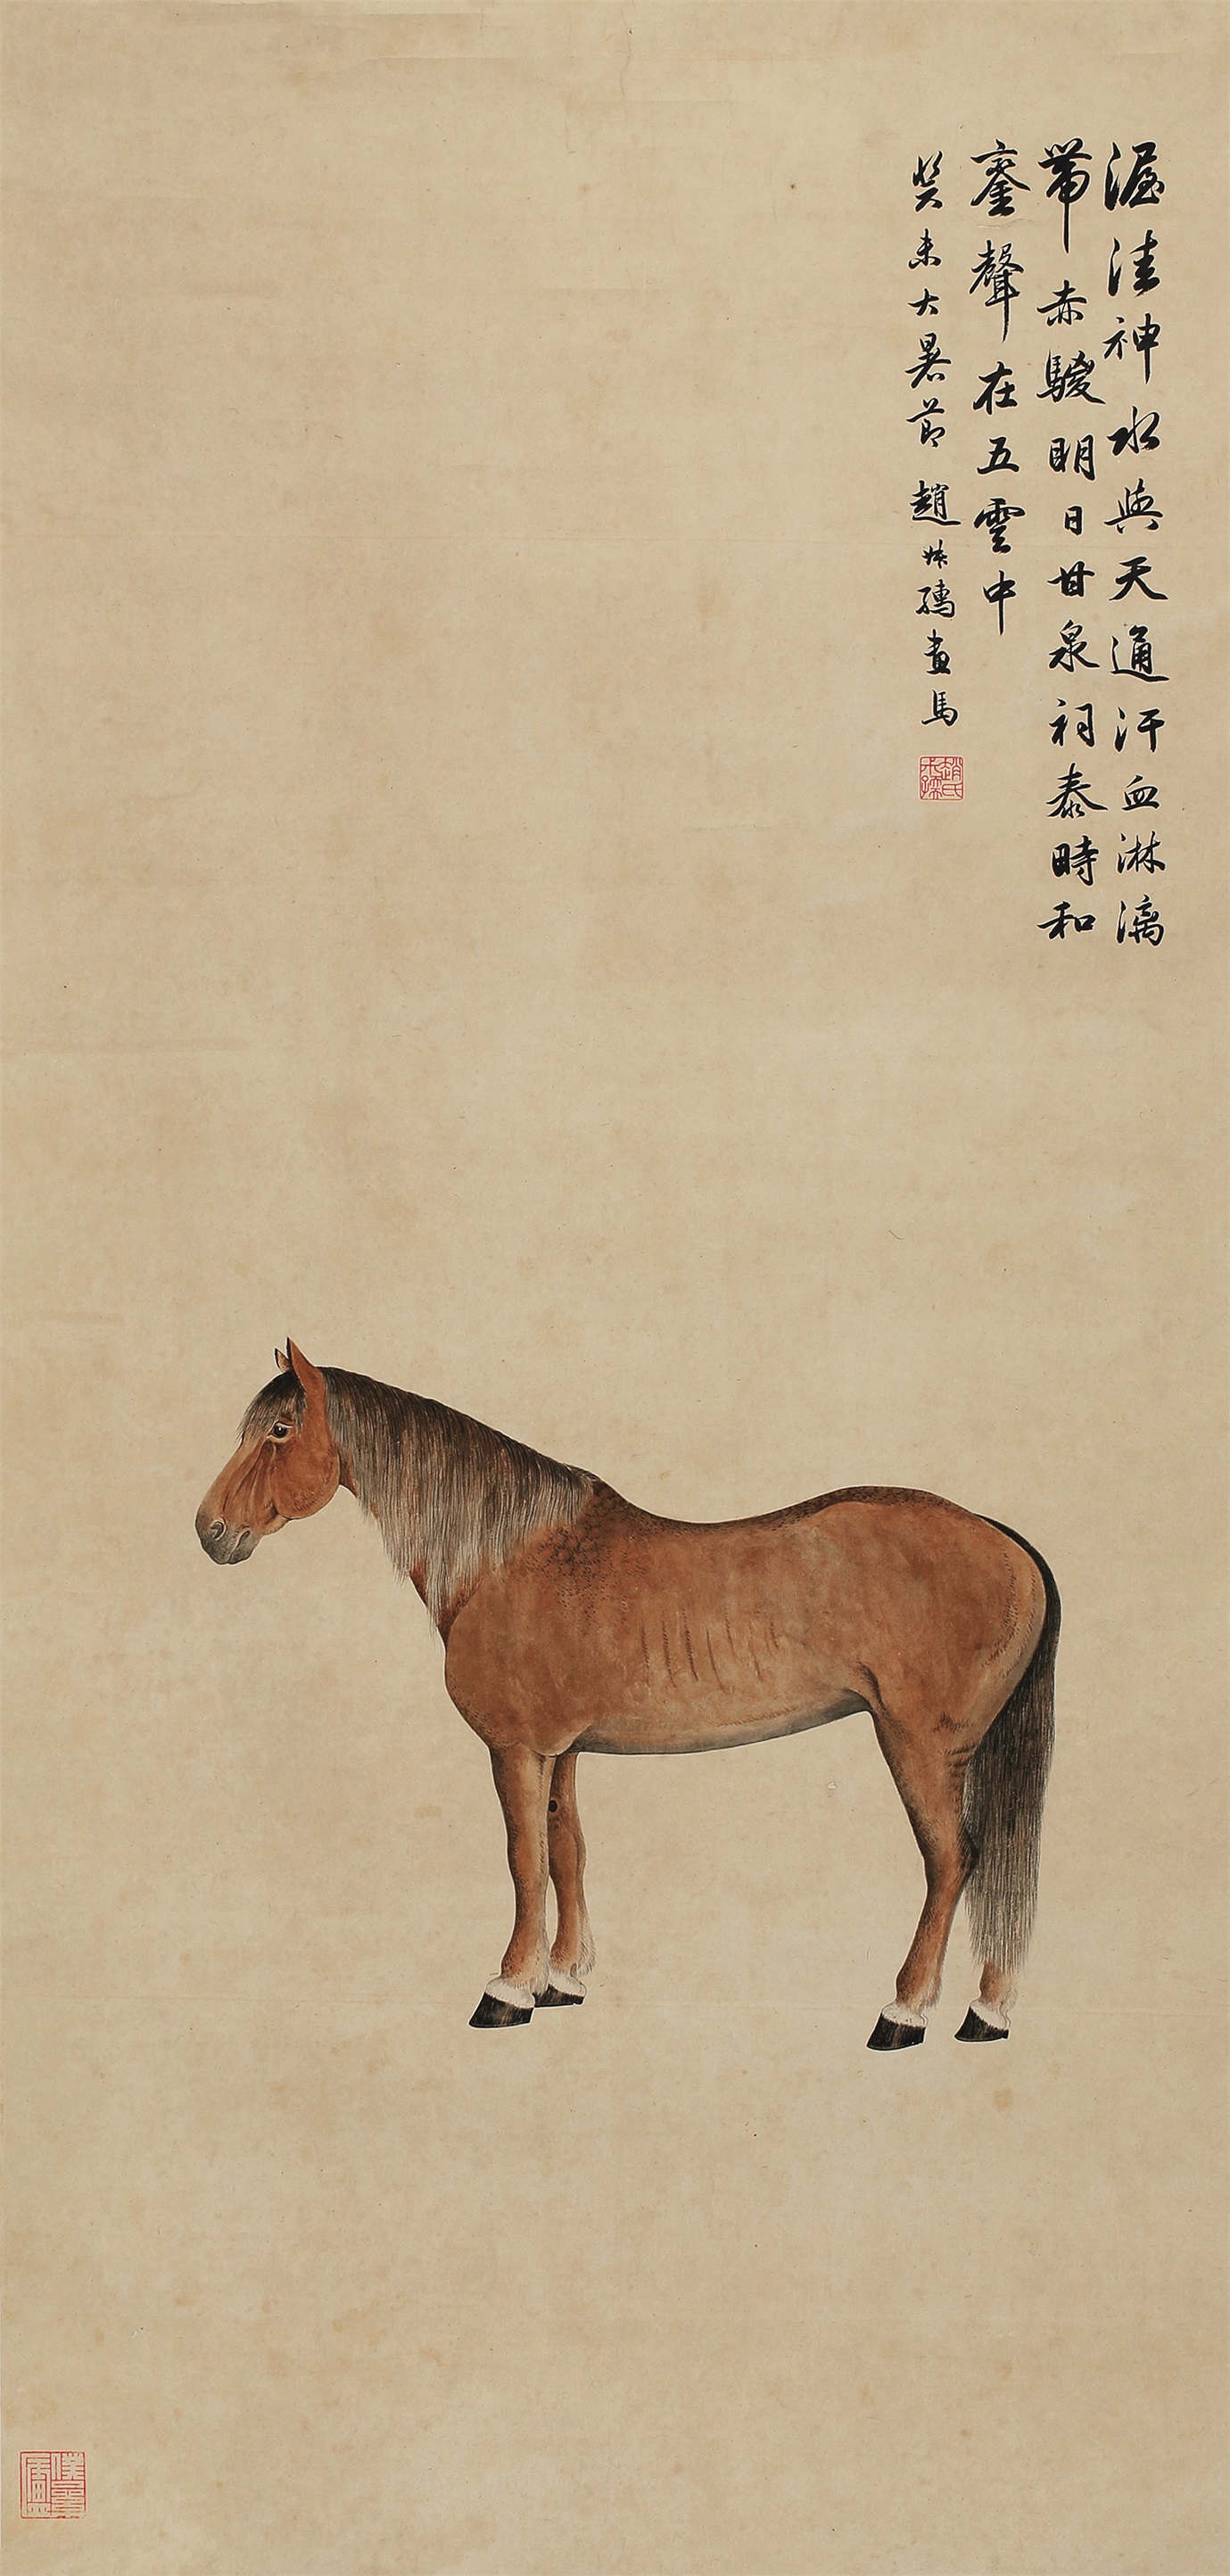 渥洼神水與天通汗血淋漓
帶赤騣明日甘泉祠泰畤和
鑾聲在五雲中
癸未大暑節趙叔孺畫馬
趙氏叔孺